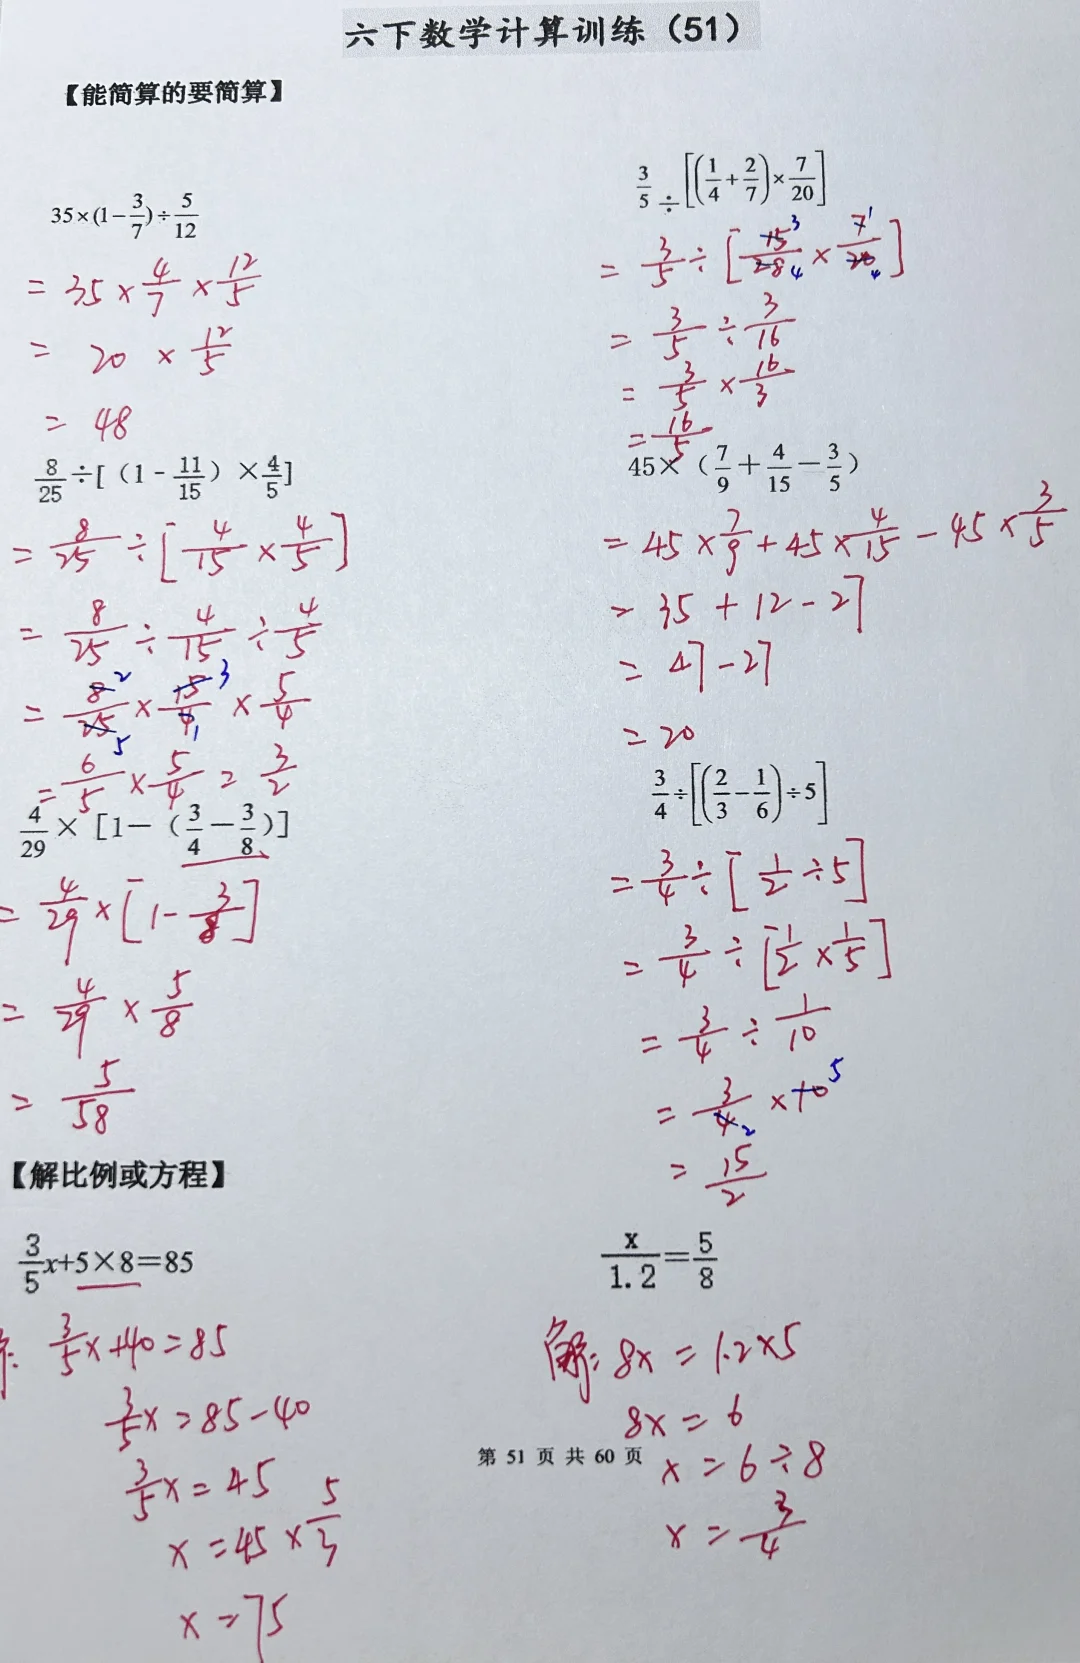 六下数学计算训练（51）
【能简算的要简算】
35×(1-3/7)÷5/12
= 35×4/7×12/5
= 20×12/5
= 48
3/5÷[(1/4+2/7)×7/20]
= 3/5÷[15/28×7/20] 3 4 1 4
= 3/5÷3/16
= 3/5×16/3
= 16/5
8/25÷[（1-11/15）×4/5]
= 8/25÷[4/15×4/5]
= 8/25÷4/15÷4/5
= 8/25×15/4×5/4 2 5 3 1
= 6/5×5/4 = 3/2
45×（7/9+4/15-3/5）
= 45×7/9+45×4/15-45×3/5
= 35+12-27
= 47-27
= 20
4/29×[1-（3/4-3/8）]
= 4/29×[1-3/8]
= 4/29×5/8
= 5/58
3/4÷[(2/3-1/6)÷5]
= 3/4÷[1/2÷5]
= 3/4÷[1/2×1/5]
= 3/4÷1/10
= 3/4×10 2 5
= 15/2
【解比例或方程】
3/5x+5×8=85
3/5x+40=85
3/5x=85-40
3/5x=45
x=45×5/3
x=75
x/1.2=5/8
解: 8x=1.2×5
8x=6
x=6÷8
x=3/4
第 51 页 共 60 页